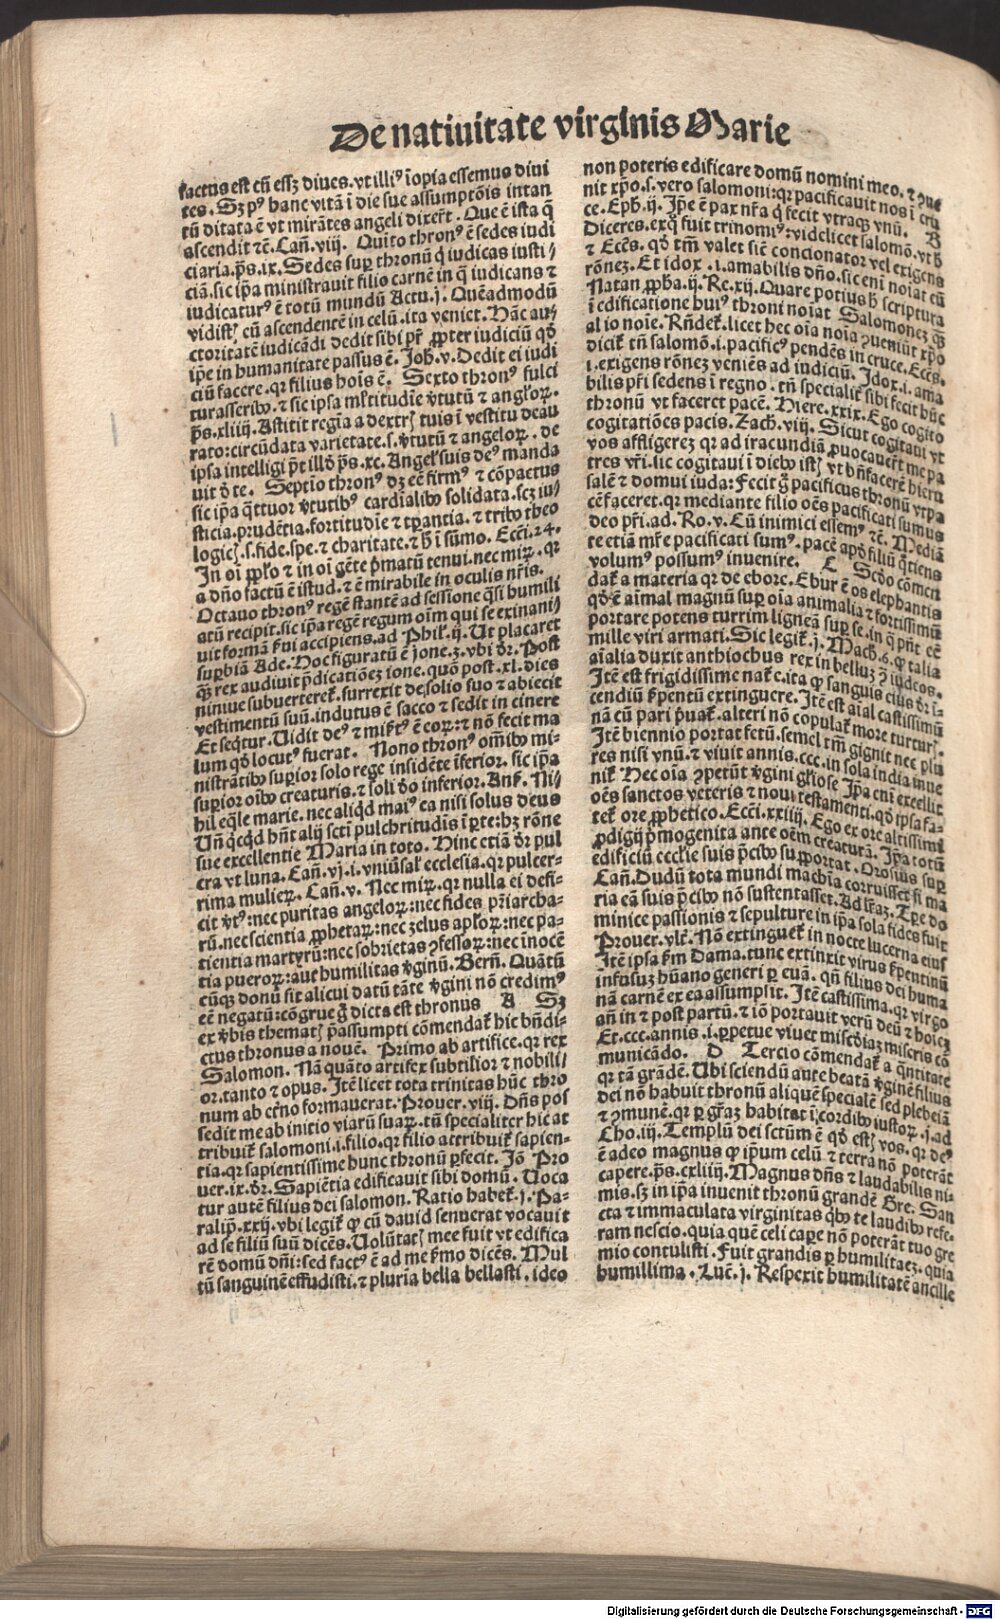 De natiuitate virginis Marie
factus est cū essꝫ diues. vt illiꝰ īopia essemus diui
tes. Sꝫ pꝰ hanc vitā ī die sue assumptōis intan
tū ditata ē vt mirātes angeli dixerꝉt. Que ē ista q̄
ascendit ⁊c̄. Cañ. viij. Quito thronꝰ ē sedes iudi
ciaria. ps̄. ix. Sedes suꝑ thronū q̇ iudicas iusti⸗
ciā. sic ip̄a ministrauit filio carnē in q̄ iudicans ⁊
iudicaturꝰ ē totū mundū Actu. j. Quēadmodū
vidistꝭ cū ascendentē in celū. ita veniet. Hāc au⸗
ctoritatē iudicādi dedit sibi pr̄ ꝓpter iudiciū qd̄
ip̄e in humanitate passus ē. Joh̄. v. Dedit ei iudi
ciū facere. qꝛ filius hoīs ē. Sexto thronꝰ fulci
tur asserib⁹. ⁊ sic ipsa ml̄titudīe v̄tutū ⁊ angloꝝ.
ps̄. xliiij. Astitit regīa a dextrꝭ tuis ī vestitu deau
rato: circūdata varietate. s. v̄tutū ⁊ angeloꝝ. de
ipsa intelligi pōt illd̄ ps̄. xc. Angelꝭ suis deꝰ manda
uit d̄ te. Septīo thronꝰ dꝫ eē firmꝰ ⁊ cōpactus
sic ipa q̄ttuor v̄tutibꝰ cardialib⁹ solidata. scꝫ iu⸗
sticia. prudētia. fortitudīe ⁊ tꝑantia. ⁊ trib⁹ theo
logicꝭ. s. fide. spe. ⁊ charitate. ⁊ h̄ ī sūmo. Ecci. 24.
In oī ppl̄o ⁊ in oī gēte p̄matū tenui. nec miꝝ. qꝛ
a dn̄o factū ē istud. ⁊ ē mirabile in oculis nr̄is.
Octauo thronꝰ regē stantē ad sessionē q̄si humili
atū recipit. sic ip̄a regē regum oīm qui se exinani⸗
uit formā ẜui accipiens. ad Phil̄. ij. Ut placaret
suꝑbiā Ade. Hoc figuratū ē jone. 3. vbi dr̄. Post
q̄ꝫ rex audiuit p̄dicatiōeꝫ ione. quō post. xl. dies
niniue subuerteret̄. surrexit de solio suo ⁊ abiecit
vestimentū suū. indutus ē sacco ⁊ sedit in cinere
Et seq̄tur. Uidit deꝰ ⁊ mis̄tꝰ ē eoꝝ: ⁊ nō fecit ma
lum qd̄ locutꝰ fuerat. Nono thronꝰ om̄ib⁹ mi⸗
nistrātib⁹ suꝑior solo rege insidēte īferior. sic ip̄a
suꝑior oīb⁹ creaturis. ⁊ soli d̄o inferior. Ans̄. Ni⸗
hil eq̄le marie. nec aliqd maiꝰ ea nisi solus deus
Un̄ q̇cqd hn̄t alij sctī pulchritudīs ī ꝑte: hꝫ rōne
sue excellentie Maria in toto. Hinc etiā dr̄ pul
cra vt luna. Cañ. vj. i. vniūsal̄ ecclesia. qꝛ pulcer⸗
rima mulieꝝ. Cañ. v. Nec miꝝ. qꝛ nulla ei defi⸗
cit v̄tꝰ: nec puritas angeloꝝ: nec fides pr̄iarcha⸗
rū. nec scientia ꝓphetaꝝ: nec zelus apl̄oꝝ: nec pa⸗
tientia martyrū: nec sobrietas ꝯfessoꝝ: nec inocē
tia pueroꝝ: aut humilitas v̄ginū. Bern̄. Quātū
cūqꝫ donū sit alicui datū tāte v̄gini nō credimꝰ
eē negatū: cōgrue ḡ dicta est thronus A Sꝫ
ex v̄bis thematꝭ p̄assumpti cōmendat̄ hic bn̄di⸗
ctus thronus a nouē. Primo ab artifice. qꝛ rex
Salomon. Nā quāto artifex subtilior ⁊ nobili⸗
or. tanto ⁊ opus. Itē licet tota trinitas hūc thro
num ab etn̄o formauerat. Prouer. viij. Dn̄s pos
sedit me ab initio viarū suaꝝ. tn̄ specialiter hic at
tribuit̄ salomoni. i. filio. qꝛ filio attribuit̄ sapien⸗
tia. qꝛ sapientissime hunc thronū ꝑfecit. Jō Pro
uer. ix. dr̄. Sapiētia edificauit sibi domū. Uoca
tur autē filius dei salomon. Ratio habet̄. j. Pa⸗
ralip̄. xxij. vbi legit̄ ꝙ cū dauid senuerat vocauit
ad se filiū suū dicēs. Uolūtatꝭ mee fuit vt edifica
rē domū dn̄i: sed factꝰ ē ad me ẜmo dicēs. Mul
tū sanguinē effudisti. ⁊ pluria bella bellasti. ideo
non poteris edificare domū nomini meo. ⁊ ꝯue
nit xp̄o. s. vero salomoni: qꝛ pacificauit nos ī cru
ce. Eph̄. ij. Ip̄e ē pax nr̄a q̇ fecit vtraqꝫ vnū. B
Diceres. ex quo fuit trinomiꝰ: videlicet salomō. vt h̄
⁊ Eccs̄. qd̄ tm̄ valet sic̄ concionator vel exigens
rōneꝫ. Et idox. i. amabilis dn̄o. sic eni noīat eū
Natan ꝓph̄a. ij. Re. xij. Quare potius h̄ scriptura
ī edificatione huiꝰ throni noīat Salomoneꝫ q̄ꝫ
al io noīe. Rn̄det̄. licet hec oīa noīa ꝯueniūt xp̄o
dicit̄ tn̄ salomō. i. pacificꝰ pendēs in cruce. Eccs̄.
i. exigens rōneꝫ veniēs ad iudiciū. Idox. i. ama
bilis pr̄i sedens ī regno. tn̄ specialit̄ sibi fecit hūc
thronū vt faceret pacē. Hiere. xxix. Ego cogito
cogitatiōes pacis. Zach̄. viij. Sicut cogitaui vt
vos affligereꝫ qꝛ ad iracundiā ꝓuocauer̄t me pa
tres vr̄i. sic cogitaui ī dieb⁹ istꝭ vt bn̄facerē hieru
salē ⁊ domui iuda: Fecit ḡ pacificus thronū vt pa
cē faceret. qꝛ mediante filio oēs pacificati sumus
deo pr̄i. ad. Ro. v. Cū inimici essemꝰ ⁊c̄. Mediā
te etiā mr̄e pacificati sumꝰ. pacē apd̄ filiū q̄tiens
volumꝰ possumꝰ inuenire. C Scd̄o cōmen
dat̄ a materia qꝛ de ebore. Ebur ē os elephantis
qd̄ ē aīmal magnū suꝑ oīa animalia ⁊ fortissimū
portare potens turrim ligneā suꝑ se. in q̄ pn̄t eē
mille viri armati. Sic legit̄. j. Mach̄. 6. ꝙ talia
aīalia duxit anthiochus rex in belluꝫ ꝯ iudeos.
Itē est frigidissime nat̄e. ita ꝙ sanguis eius dr̄ ī⸗
cendiū ẜpentū extinguere. Itē est aīal castissimū
nā cū pari p̄uat̄. alteri nō copulat̄ more turturꝭ.
Itē biennio portat fetū. semel tm̄ gignit nec plu
res nisi vnū. ⁊ viuit annis. ccc. in sola india inue
nit̄. Hec oīa ꝯpetūt v̄gini gl̄iose Ip̄a em̄ excellit
oēs sanctos veteris ⁊ noui testamenti. qd̄ ipsa fa⸗
tet̄ ore ꝓphetico. Ecci. xxiiij. Ego ex ore altissimi
ꝓdij p̄mogenita ante oēm creaturā. Ip̄a totū
edificiū eccl̄ie suis p̄cib⁹ supportat. Orosius suꝑ
Cañ. Dudū tota mundi machīa corruisset si ma
ria eā suis p̄cib⁹ nō sustentasset. Ad lr̄aꝫ. Tꝑe do
minice passionis ⁊ sepulture in ip̄a sola fides fuit
Prouer. vlt̄. Nō extinguet̄ in nocte lucerna eius
Itē ipsa ẜm Dama. tunc extinxit virus ẜpentinū
infusuꝫ hūano generi ꝑ euā. qn̄ filius dei huma
nā carnē ex ea assumpsit. Itē castissima. qꝛ virgo
an̄ in ⁊ post partū. ⁊ iō portauit verū deū ⁊ hoīeꝫ
Et. ccc. annis. i. ꝑpetue viuet misc̄diaꝫ miseris cō
municādo. D Tercio cōmendat̄ a q̄ntitate
qꝛ tā grandē. Ubi sciendū ante beatā v̄ginē filius
dei nō habuit thronū aliquē specialē sed plebeiā
⁊ ꝯmunē. qꝛ ꝑ gr̄aꝫ habitat ī cordib⁹ iustoꝝ. j. ad
Cho. iij. Templū dei sctūm ē qd̄ estꝭ vos. qꝛ deꝰ
ē adeo magnus ꝙ ip̄um celū ⁊ terra nō poterāt
capere. ps̄. cxliiij. Magnus dn̄s ⁊ laudabilis ni⸗
mis. sꝫ in ip̄a inuenit thronū grandē Gre. San
cta ⁊ immaculata virginitas qb⁹ te laudib⁹ refe⸗
ram nescio. quia quē celi caꝑe nō poterāt tuo gre
mio contulisti. Fuit grandis ꝑ humilitaeꝫ. quia
humillima. Luc̄. j. Respexit humilitatē ancille
Digitalisierung gefördert durch die Deutsche Forschungsgemeinschaft - DFG